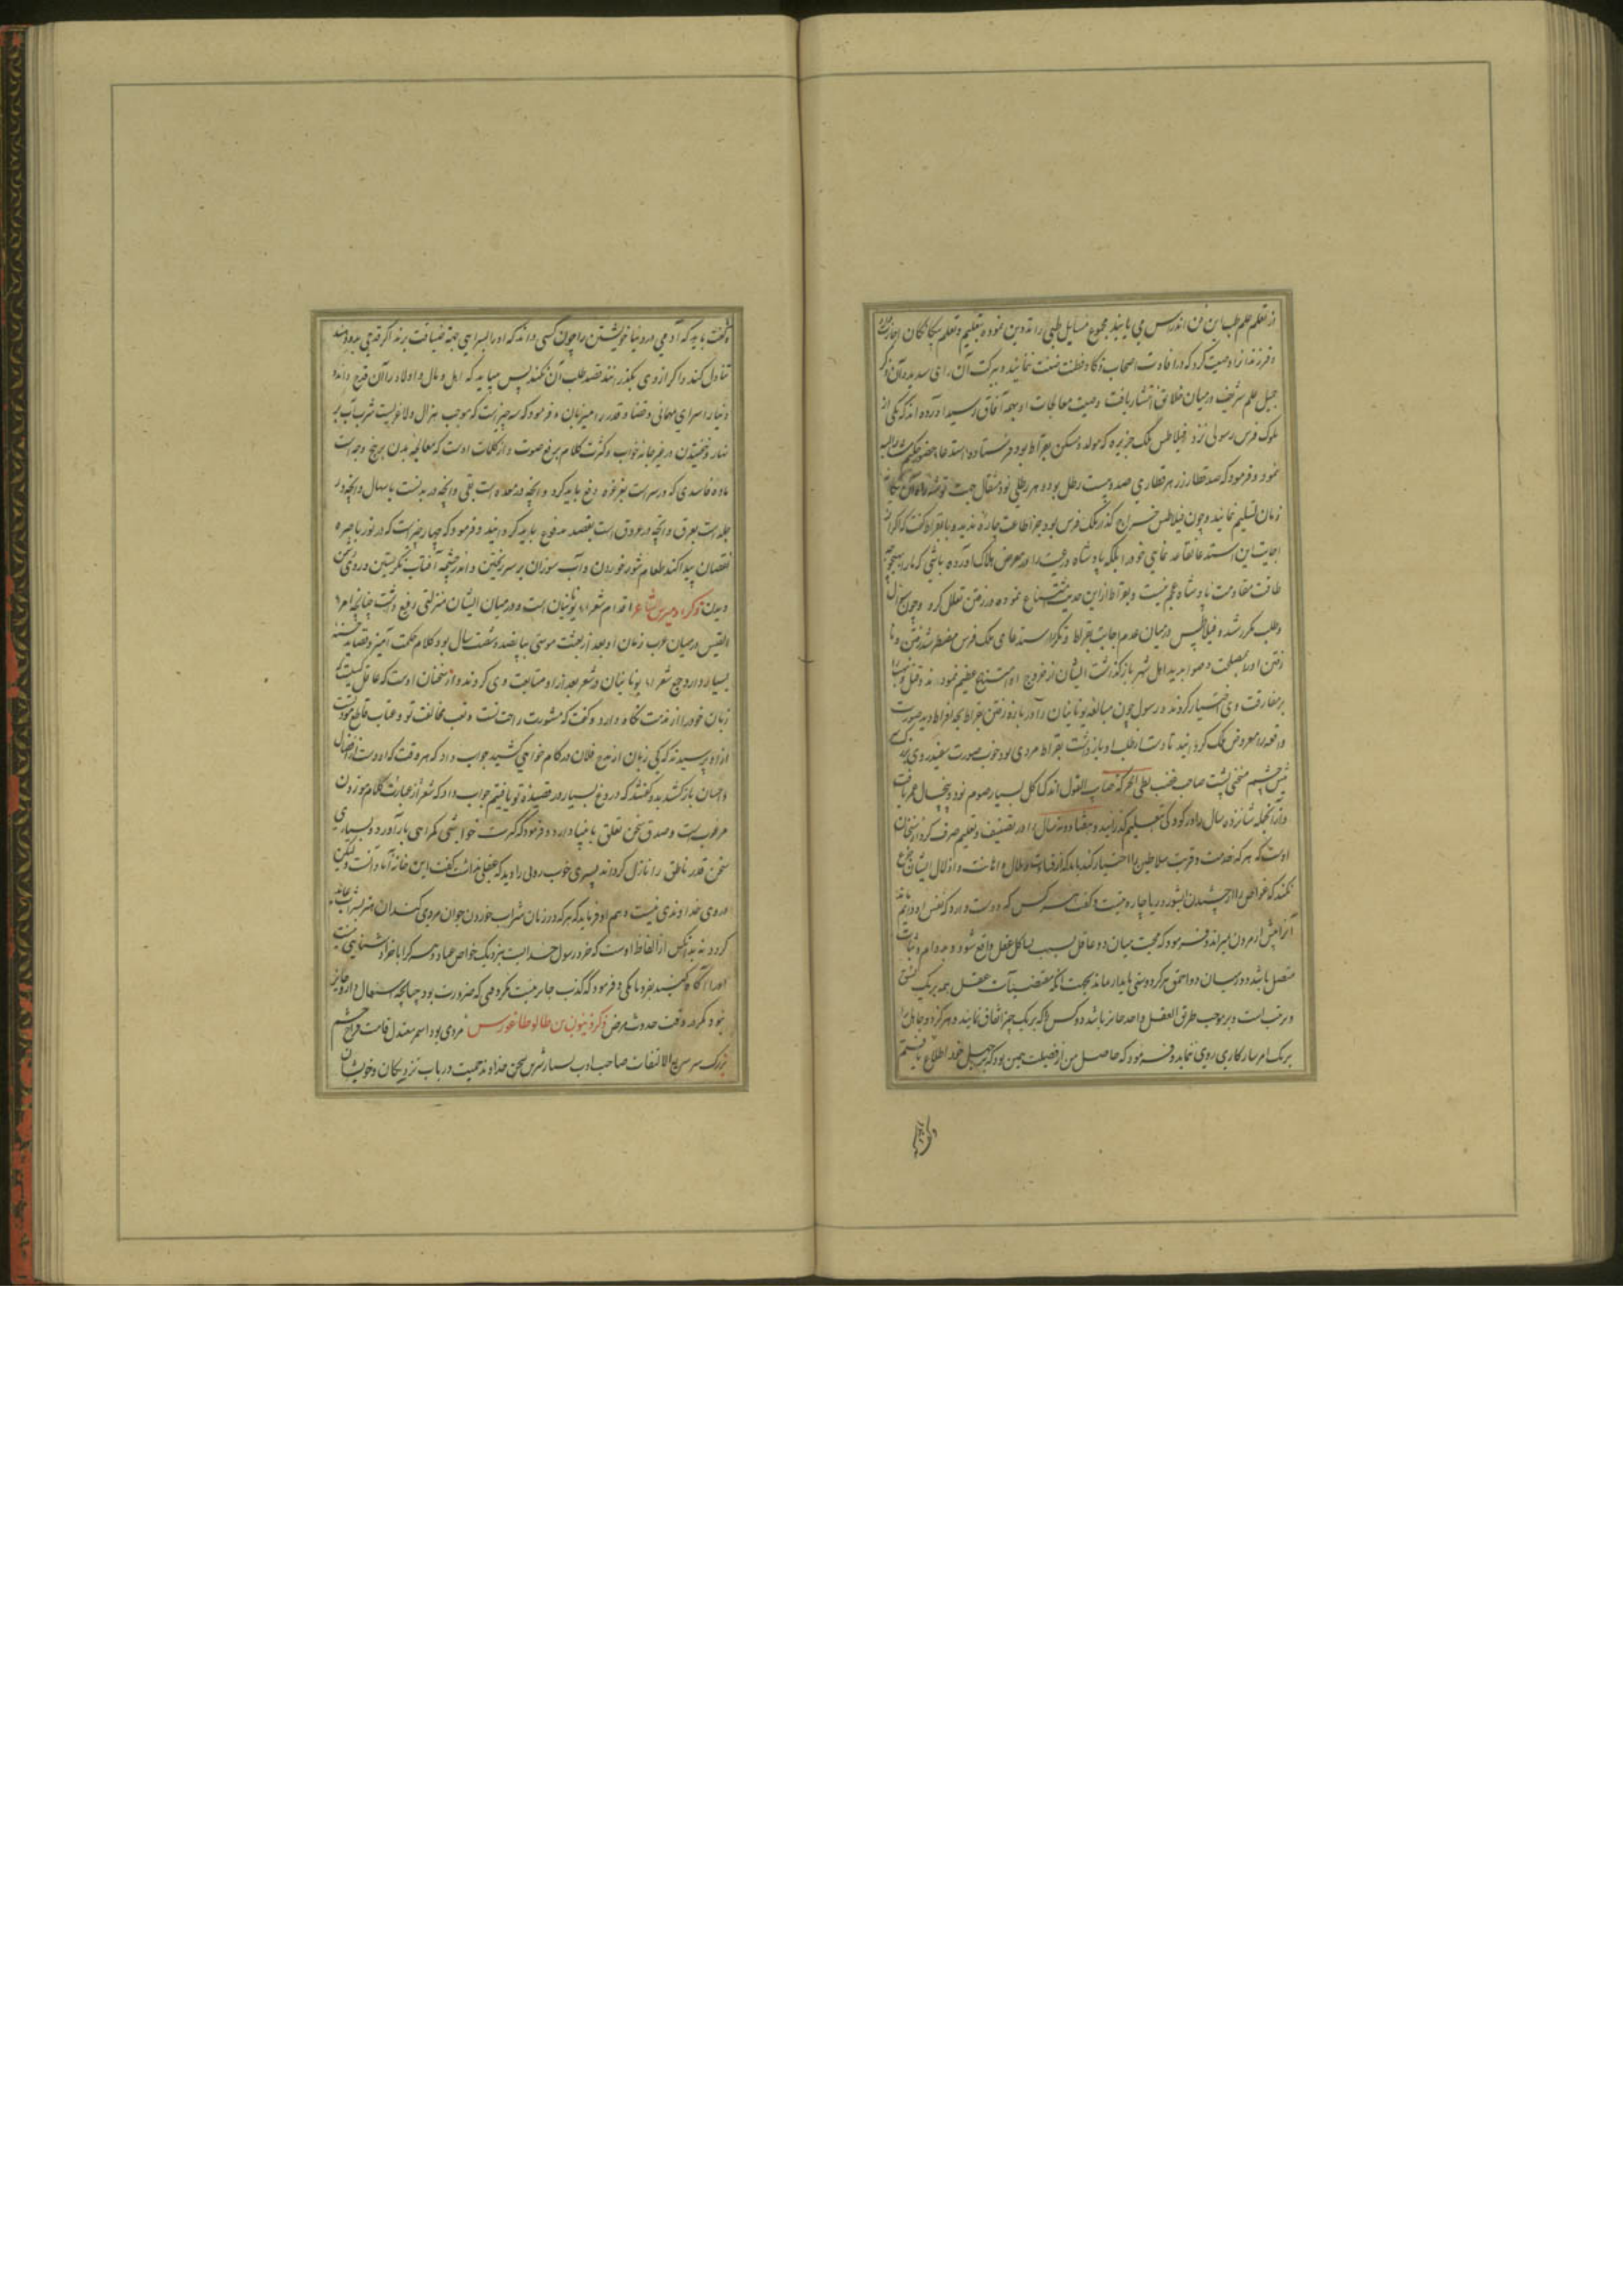 از تعلم علم طب این فن اندراس می یابد مجموع مسایل طبی را تدوین نموده بتعلیم و تعلم بیگانگان اجازت
و فرزندانرا وصیت کرد که در افادت اصحاب ذکا و فطنت ضنت ننمایند و ببرکت آن رای سدید آن ذکر
جمیل علم شریف در میان خلایق انتشار یافت وصیت معالجات او بهمه آفاق رسید آورده اند که یکی از
ملوک فرس رسولی نزد فیلاطس ملک جزیره که مولد و مسکن بقراط بود فرستاده استدعا حضور حکیم
نمود و فرمود که صد قنطار زر هر قنطاری صد و بیست رطل بوده هر رطلی نود مثقال جهت توشه راه
زمان تسلیم نمایند و چون فیلاطس خراج گذار ملک فرس بود جز اطاعت چاره ندید و با بقراط گفت که اگر از
اجابت این استدعا تقاعد نمایی خود را بلکه پادشاه و رعیت را در معرض هلاک آورده باشی که ما را بهیچ وجه
طاقت مقاومت پادشاه عجم نیست و بقراط از این حدیث امتناع نموده در رفتن تعلل کرد و چون سؤال
و طلب مکرر شد و فیلاطس در میان عدم اجابت بقراط و تکرار استدعای ملک فرس مضطر شد رفتن و نا
رفتن او را بمصلحت و صوابدید اهل شهر باز گذاشت ایشان از خروج او استبداع عظیم نمودند و قتل و نهب را
بر مفارقت وی اختیار کردند و رسول چون مبالغه یونانیان را در باره رفتن بقراط بحد افراط دید صورت
واقعه را معروض ملک گردانید تا دست از طلب او باز داشت بقراط مردی بود خوب صورت سفید روی بزرگ سر
میش چشم منحنی پشت صاحب غضب بطی الحرکه صایب القول اندک اکل بسیار صوم نود و پنج سال عمر یافت
و از آنجمله شانزده سال را در کودکی و تعلیم گذرانید و هفتاد و نه سال را در تصنیف و تعلیم صرف کرد از سخنان
اوست که هر که خدمت و قربت سلاطین را اختیار کند باید که از اهانت و اذلال ایشان جزع
نکند که غواص را از چشیدن آب شور دریا چاره نیست و گفت هر کس که دوست دارد که نفس او دایم
آنرا پیش از مردن میراند و فرمود که محبت میان دو عاقل بسبب تشاکل عقل واقع شود و بدوام و ثبات
متصل باشد و در میان دو احمق هرگز دوستی پایدار نماند بجهت آنکه مقتضیات عقل همه بر یک نسق
و مرتب است و بر موجب طریق العقل واحد جایز باشد دو کس را که بر یک چیز اتفاق نمایند و هرگز دو جاهل را
بر یک امر سازگاری روی ننماید و فرمود که حاصل من از فضیلت همین بود که بر جهل خود اطلاع یافتم
و گفت باید که آدمی در دنیا خویشتن را چون کسی داند که او را بسرایی جهة ضیافت برند اگر قدحی بدو دهند
تناول کند و اگر از وی بگذرانند قصد طلب آن نکند پس میباید که اهل و مال و اولاد را آن قدح داند و
دنیا را سرای مهمانی و قضا و قدر را میزبان و فرمود که سه چیز است که موجب هزال و لاغریست شرب آب بر
نهار و خفتن در غیر جامه خواب و کثرت کلام برفع صوت و از کلمات اوست که معالجه بدن بر پنج وجه است
ماده فاسدی که در سر است بغرغره دفع باید کرد و آنچه در معده است بقی و آنچه در بدنست باسهال و آنچه در
جلد است بعرق و آنچه در عروق است بفصد مدفوع باید گردانید و فرمود که چهار چیز است که در نور باصره
نقصان پیدا کند طعام شور خوردن و آب سوزان بر سر ریختن و اندر چشمه آفتاب نگریستن و روی دشمن
دیدن ذکر اومیرس شاعر اقدام شعراء یونانیان است و در میان ایشان منزلتی رفیع داشت چنانچه امرء
القیس در میان عرب زمان او بعد از بعثت موسی بپانصد و شصت سال بود کلام حکمت آمیز و قصاید حسنه
بسیار دارد و جمیع شعراء یونانیان در شعر بعد از او متابعت وی کردند و از سخنان اوست که عاقل کیست که
زبان خود را از مذمت نگاه دارد و گفت که مشورت راحت تست و تعب مخالفت تو و عتاب قاطع مودت
از او پرسیدند که کی زبان از مدح فلان در کام خواهی کشید جواب داد که هر وقت که او دست از افضال
و احسان باز کشد بدو گفتند که دروغ بسیار در قصیده تو یافتیم جواب داد که شعر از عبارت کلام موزون
مرغوبست و صدق سخن تعلق بانبیا دارد و فرمود که کثرت خواموشی گمراهی بار آورد و بسیاری
سخن قدر ناطق را نازل گرداند پسری خوب رویی را دید که عقلی نداشت گفت این خانه آبادانست و لیکن
در وی خداوندی نیست و هم او فرماید که هر که در زمان شراب خوردن جوان مردی کند آن هنر شراب
گردد نه بدان کس از الفاظ اوست که خرد رسول خدا نیست بنزدیک خواص عباد و هر که را با خرد آشنایی نیست
او را آگاه کنید بفرومایگی و فرمود که کذب جایز نیست مگر وقتی که ضرورت بود چنانچه استعمال دارو جایز
نبود مگر در وقت حدوث مرض ذکر ذینون بن طالوطاغورس مردی بود اسمر معتدل قامت فراخ چشم
بزرگ سر سریع الالتفات صاحب ادب بسیار شرین سخن خداوند حمیت در باب نزدیکان و خویشان